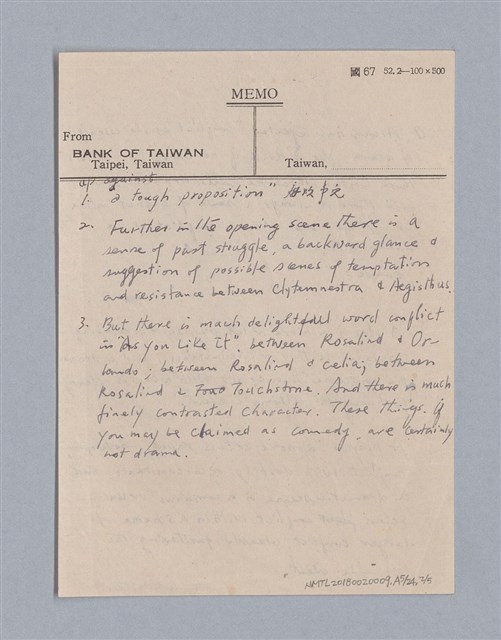 國 67 52.2—100×500
MEMO
From
BANK OF TAIWAN
Taipei, Taiwan
Taiwan,
up against
1. a tough proposition"
2. Further in the opening scene there is a
sense of past struggle, a backward glance &
suggestion of possible scenes of temptation
and resistance between Clytemnestra & Aegisthus.
3. But there is much delightful word conflict
in "As You Like It". between Rosalind & Or-
lando; between Rosalind & celia; between
Rosalind & Touchstone. And there is much
finely contrasted character. These things. if
you may be claimed as comedy, are certainly
not drama.
NMTL20180020009, A5/24, 2/5